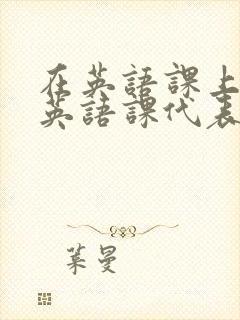 在英語課上
英語課代表
葉曼